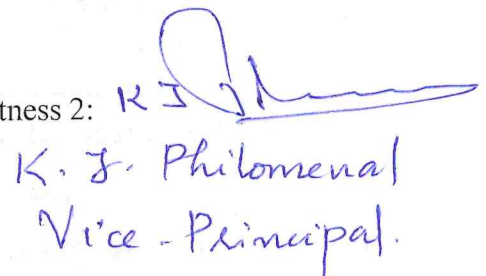 tness 2: K J
K. J. Philomenal
Vice - Principal.